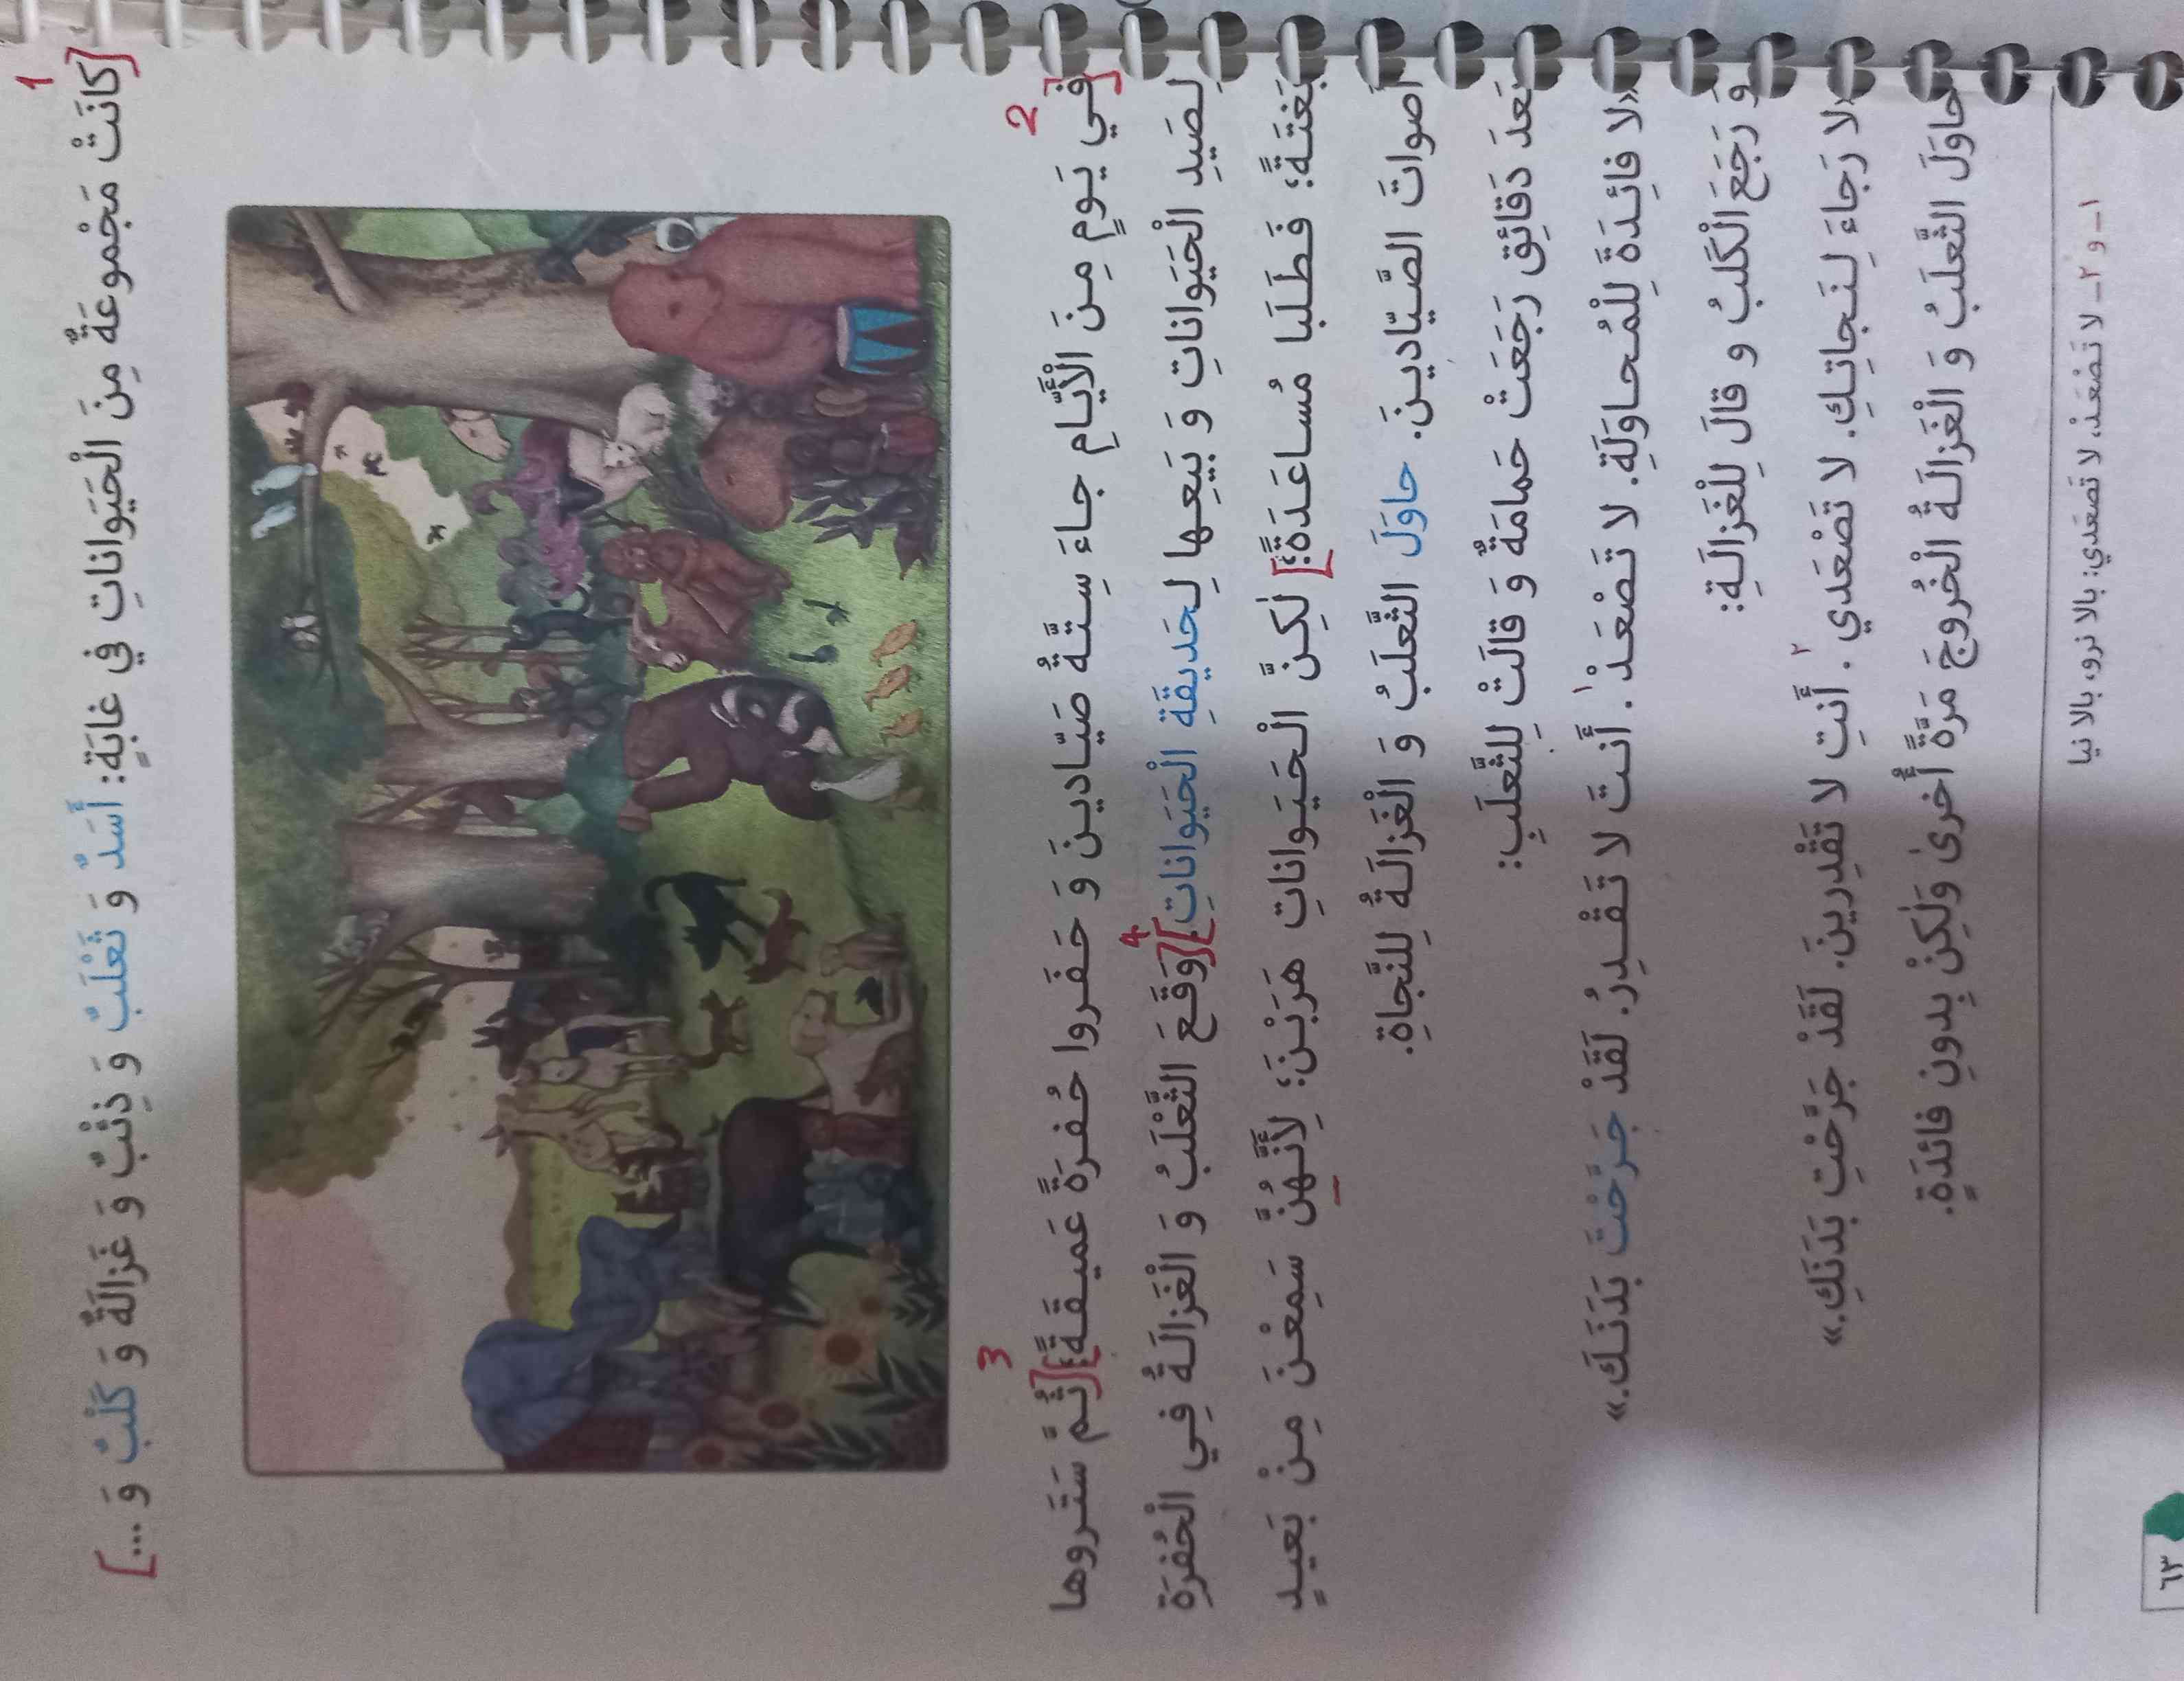 1
[كانَتْ مَجْموعَةٌ مِنَ الْحَيَواناتِ في غابَةٍ: أَسَدٌ وَ ثَعْلَبٌ وَ ذِئْبٌ وَ غَزالَةٌ وَ كَلْبٌ وَ ...]
2 3
[في يَومٍ مِنَ الْأَيّامِ جاءَ سِتَّةُ صَيّادينَ وَ حَفَروا حُفرَةً عَميقَةً؛][ثُمَّ سَتَروها
4
لِصَيدِ الْحَيَواناتِ وَ بَيعِها لِحَديقَةِ الْحَيَواناتِ.][وَقَعَ الثَّعْلَبُ وَ الْغَزالَةُ فِي الْحُفرَةِ
بَغتَةً؛ فَطَلَبا مُساعَدَةً؛] لٰكِنَّ الْحَيَواناتِ هَرَبْنَ؛ لِأَنَّهُنَّ سَمِعْنَ مِنْ بَعيدٍ
أَصواتَ الصَّيّادينَ. حاوَلَ الثَّعلَبُ وَ الْغَزالَةُ لِلنَّجاةِ.
بَعدَ دَقائِق رَجَعَتْ حَمامَةٌ وَ قالَتْ لِلثَّعلَبِ:
«لا فائِدَةَ لِلْمُحاوَلَةِ. لا تَصْعَدْ١. أَنتَ لا تَقْدِرُ. لَقَدْ جَرَحْتَ بَدَنَكَ.»
وَ رَجَعَ الْكَلبُ و قالَ لِلْغَزالَةِ:
«لا رَجاءَ لِنَجاتِكِ. لا تَصْعَدي٢. أَنتِ لا تَقْدِرينَ. لَقَدْ جَرَحْتِ بَدَنَكِ.»
حاوَلَ الثَّعلَبُ وَ الْغَزالَةُ الْخُروجَ مَرَّةً أُخرىٰ وَلٰكِنْ بِدونِ فائدَةٍ.
١ـ و ٢ـ لا تَصْعَدْ، لا تَصعَدي: بالا نرو، بالا نیا
٦٣